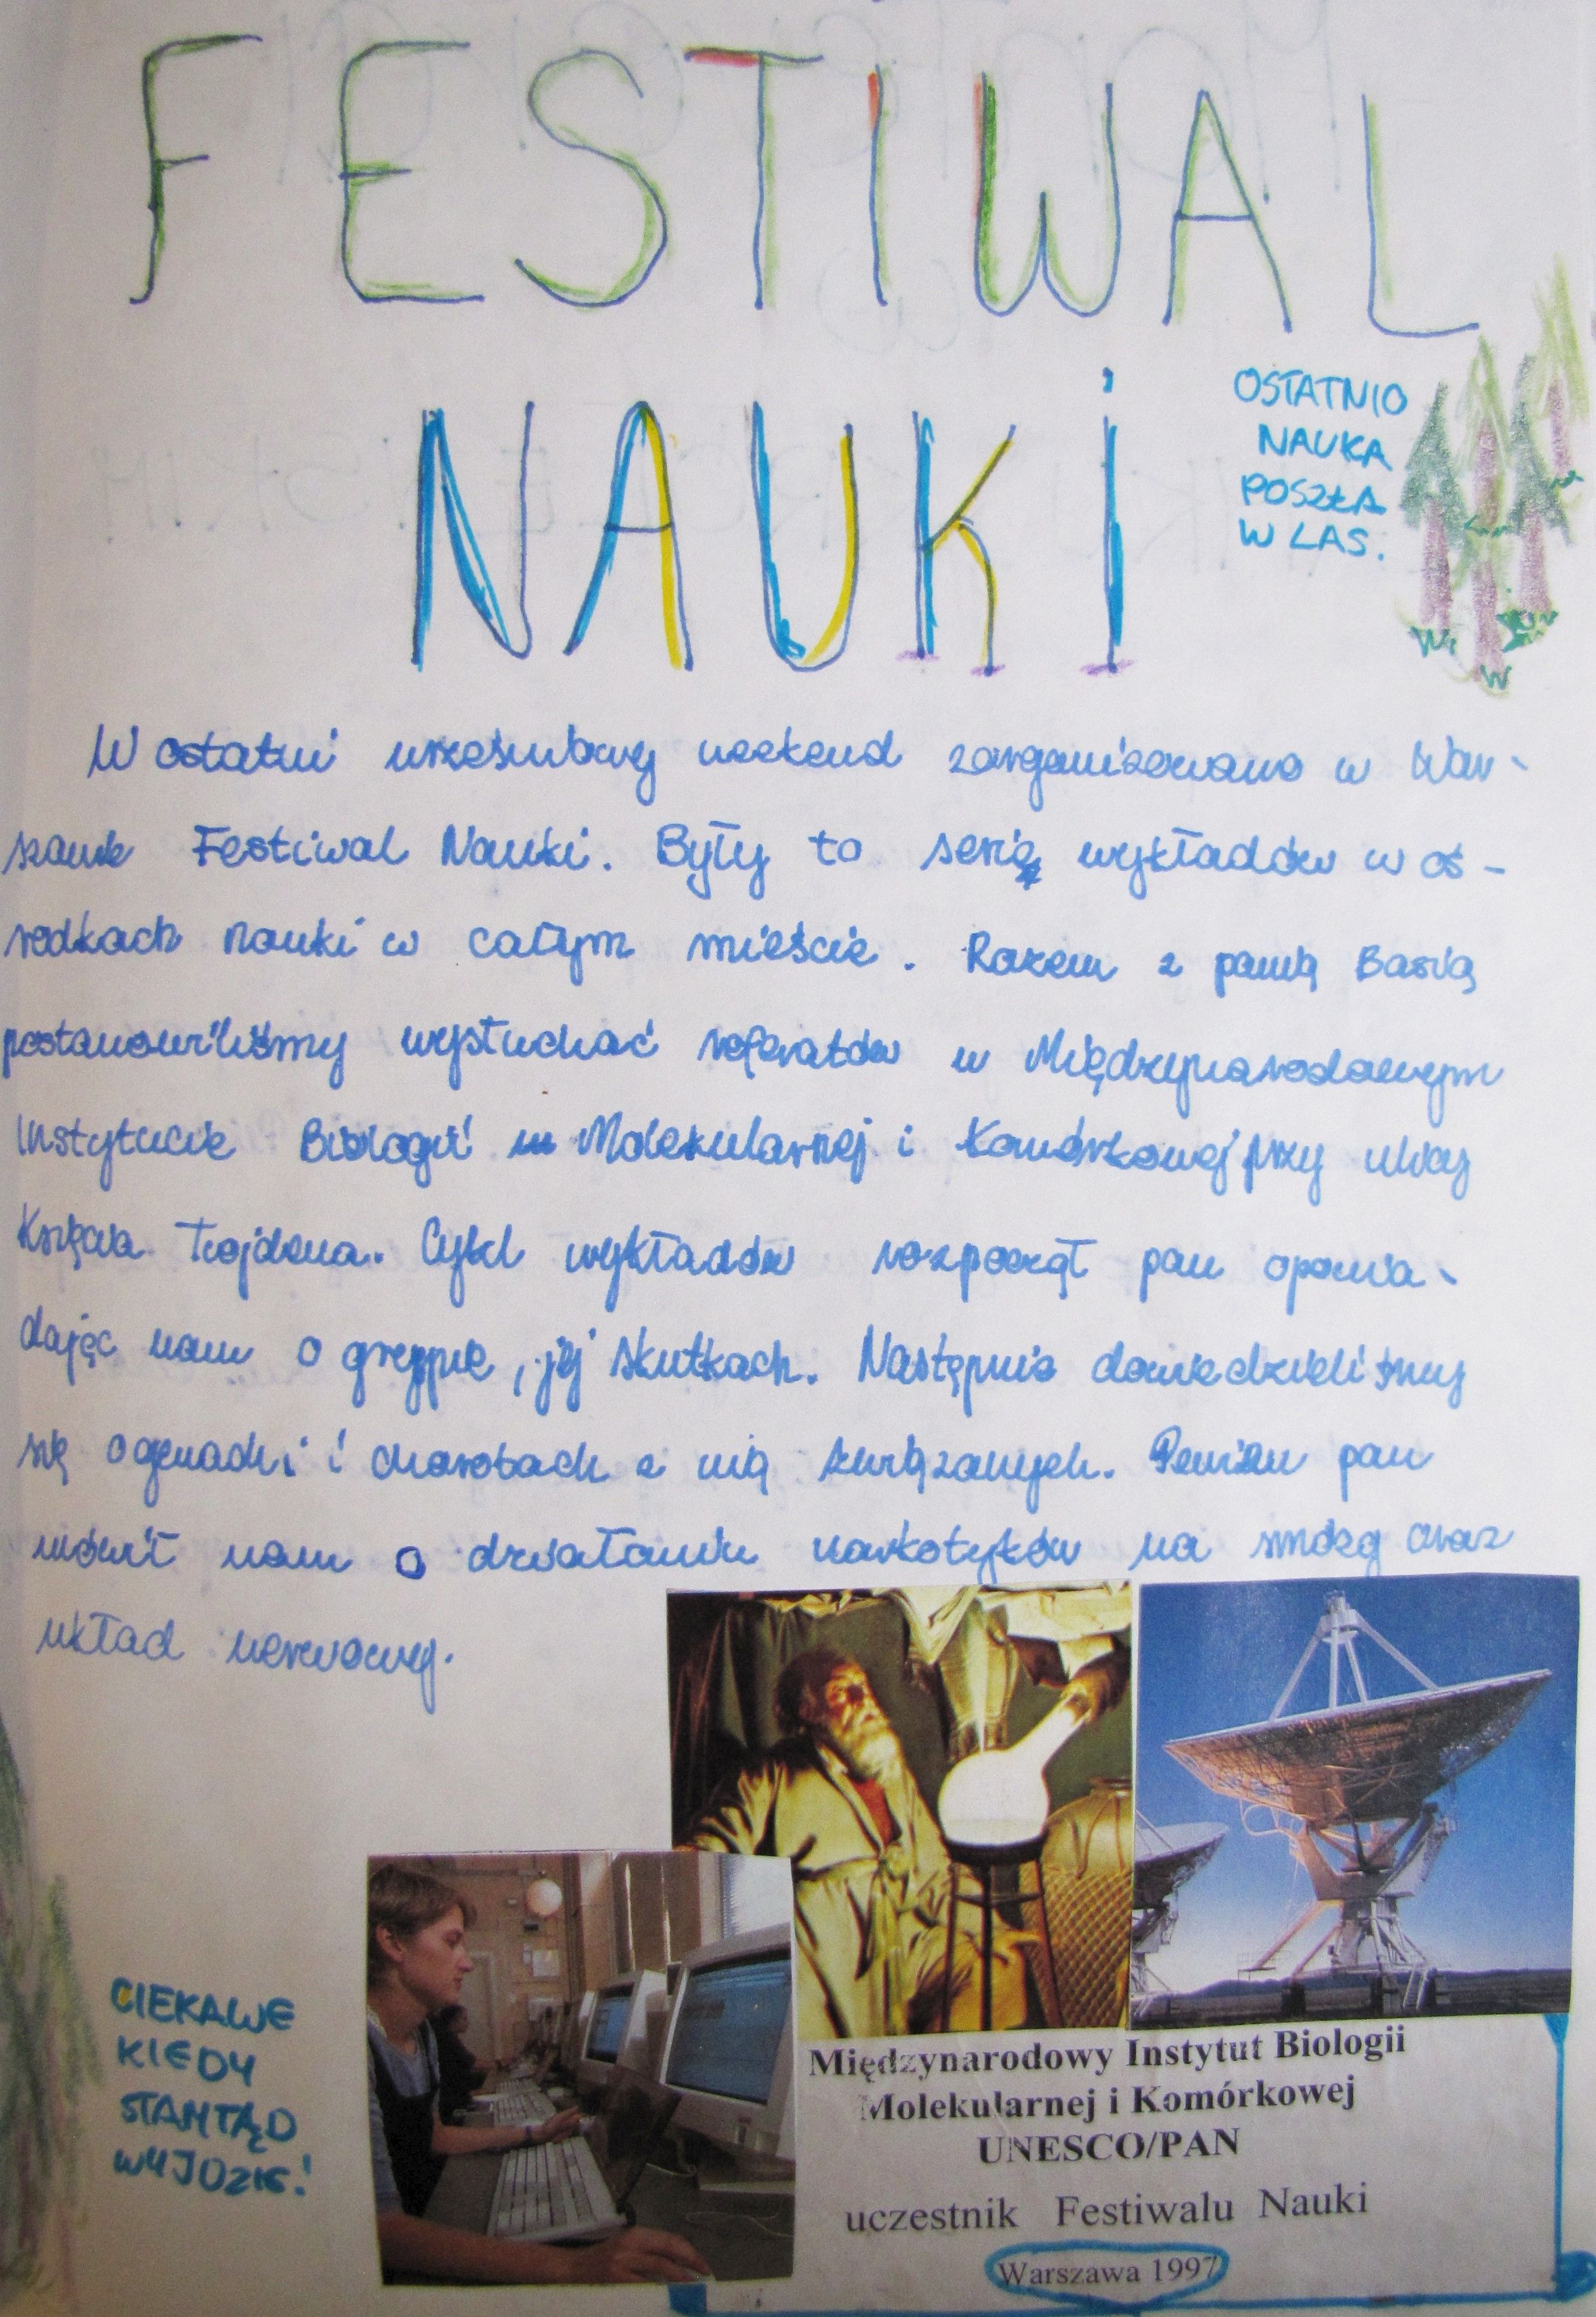 FESTIWAL
NAUKi
OSTATNIO
NAUKA
POSZŁA
W LAS.
W ostatni wrześniowy weekend zorganizowano w War-
szawie Festiwal Nauki. Były to serię wykładów w oś-
rodkach nauki w całym mieście. Razem z panią Basią
postanowiliśmy wysłuchać referatów w Międzynarodowym
Instytucie Biologii Molekularnej i Komórkowej przy ulicy
Księcia Trojdena. Cykl wykładów rozpoczął pan opowia-
dając nam o grypie, jej skutkach. Następnie dowiedzieliśmy
się o genach i chorobach z nią związanych. Pewien pan
mówił nam o działaniu narkotyków na mózg oraz
układ nerwowy.
CIEKAWE
KIEDY
STAMTĄD
WYJDZIE!
Międzynarodowy Instytut Biologii
Molekularnej i Komórkowej
UNESCO/PAN
uczestnik Festiwalu Nauki
Warszawa 1997